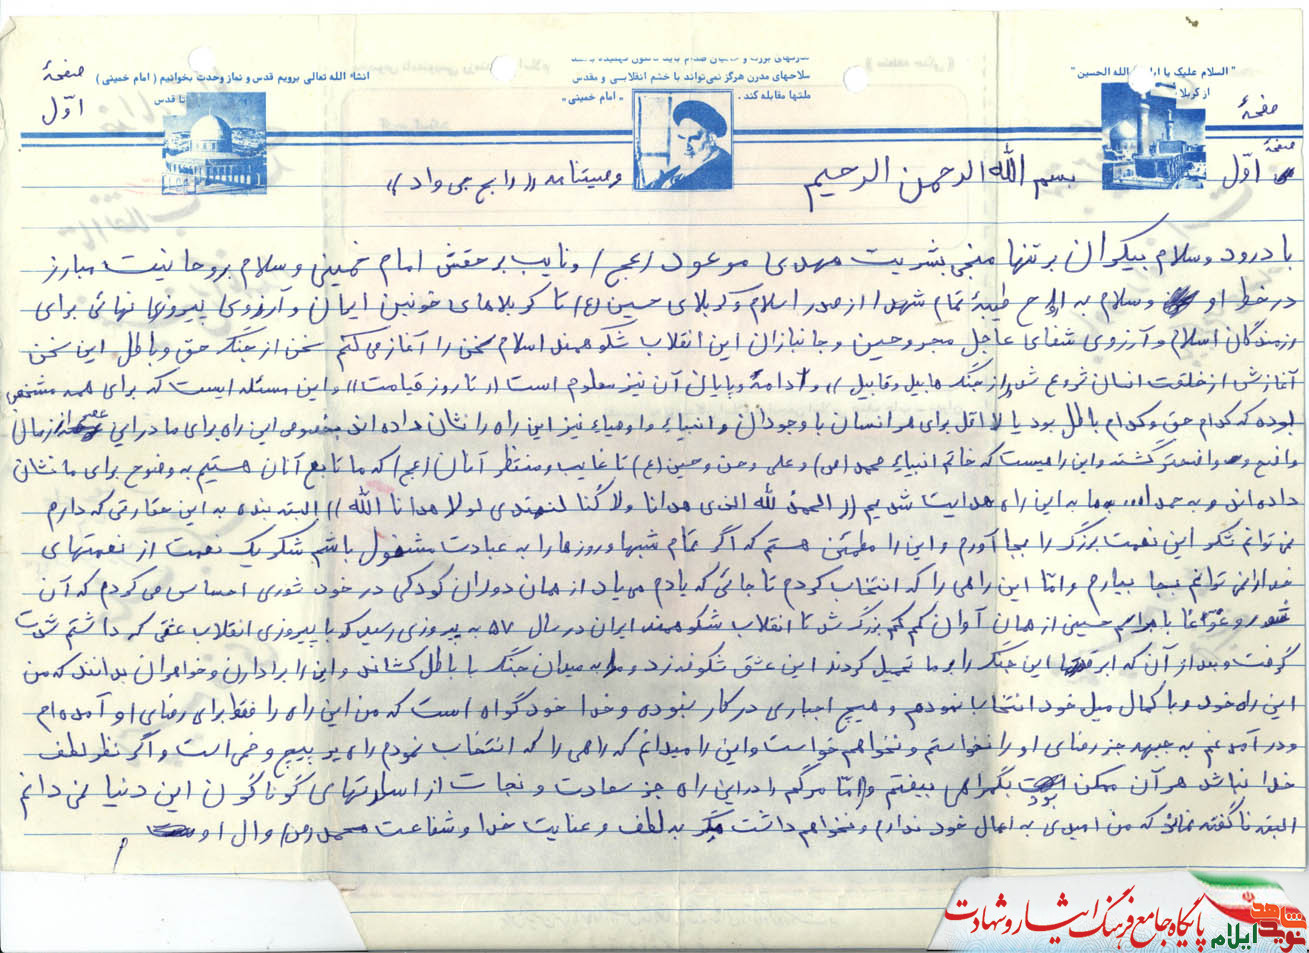 "السلام علیک یا ابا عبدالله الحسین"
از کربلا
سلاحهای مدرن هرگز نمی‌تواند با خشم انقلابی و مقدس
ملتها مقابله کند. «امام خمینی»
انشاء الله تعالی برویم قدس و نماز وحدت بخوانیم (امام خمینی)
تا قدس
صفحهٔ
اوّل
صفحهٔ
صفحهٔ
اوّل
بسم الله الرحمن الرحیم
وصیتنامه ((رابح جی واد))
با درود و سلام بیکران بر تنها منجی بشریت مهدی موعود (عج) و نایب بر حقش امام خمینی و سلام بر روحانیت مبارز
در خط او و سلام به ارواح طیبهٔ تمام شهدا از صدر اسلام و کربلای حسین (ع) تا کربلاهای خونین ایران و آرزوی پیروزی نهائی برای
رزمندگان اسلام و آرزوی شفای عاجل مجروحین و جانبازان این انقلاب شکوهمند اسلام سخن را آغاز می‌کنم سخن از جنگ حق و باطل این سخن
آغازش از خلقت انسان شروع شد از جنگ هابیل و قابیل)) و ادامهٔ و پایان آن نیز معلوم است ((تا روز قیامت)) و این مسئله ایست که برای همه مشخص
بوده که کدام حق و کدام باطل بود یا لااقل برای هر انسان با وجدان و انبیاء و اوصیاء نیز این راه را نشان داده‌اند بخصوص این راه برای ما در این عصر از زمان
واضح و واضحتر گشته و این راهیست که خاتم انبیاء محمد (ص) و علی و حسن و حسین (ع) تا غایب و منتظر آنان (عج) که ما تابع آنان هستیم به وضوح برای ما نشان
داده‌اند و به حمدالله ما به این راه هدایت شدیم ((الحمد لله الذی هدانا و لا کُنا لنهتدی لولا هدانا الله)) البته بنده به این حقارتی که دارم
نمی‌توانم شکر این نعمت بزرگ را بجا آورم و این را مطمئن هستم که اگر تمام شبها و روزها را به عبادت مشغول باشم شکر یک نعمت از نعمتهای
خدا را نمی‌توانم بجا بیارم و امّا این راهی را که انتخاب کردم تا جائی که یادم می‌یاد از همان دوران کودکی در خود شوری احساس می‌کردم که آن
شور و غوغا با مراسم حسینی از همان آوان کم کم بزرگ شد تا انقلاب شکوهمند ایران در سال ۵۷ به پیروزی رسید که با پیروزی انقلاب عشقی که داشتم شدت
گرفت و بعد از آن که ابرقدرتها این جنگ را بر ما تحمیل کردند این عشق شکوفه زد و ما را به میدان جنگ با باطل کشاند و این را برادران و خواهران بدانند که من
این راه خود و با کمال میل خود انتخاب نمودم و هیچ اجباری در کار نبوده و خدا خود گواه است که من این راه را فقط برای رضای او آمده‌ام
و در آمدنم به جبهه جز رضای او را نخواستم و نخواهم خواست و این را میدانم که راهی را که انتخاب نمودم راه پر پیچ و خمی است و اگر نظر لطف
خدا نباشد هر آن ممکن بود بگمراهی بیفتم و امّا مرگم را در این راه جز سعادت و نجات از اسارتهای گوناگون این دنیا نمی‌دانم
البته ناگفته نماند که من امیدی به اعمال خود ندارم و نخواهم داشت مگر به لطف و عنایت خدا و شفاعت محمد (ص) و آل او
پایگاه جامع فرهنگ ایثار و شهادت
نوید شاهد
ایلام